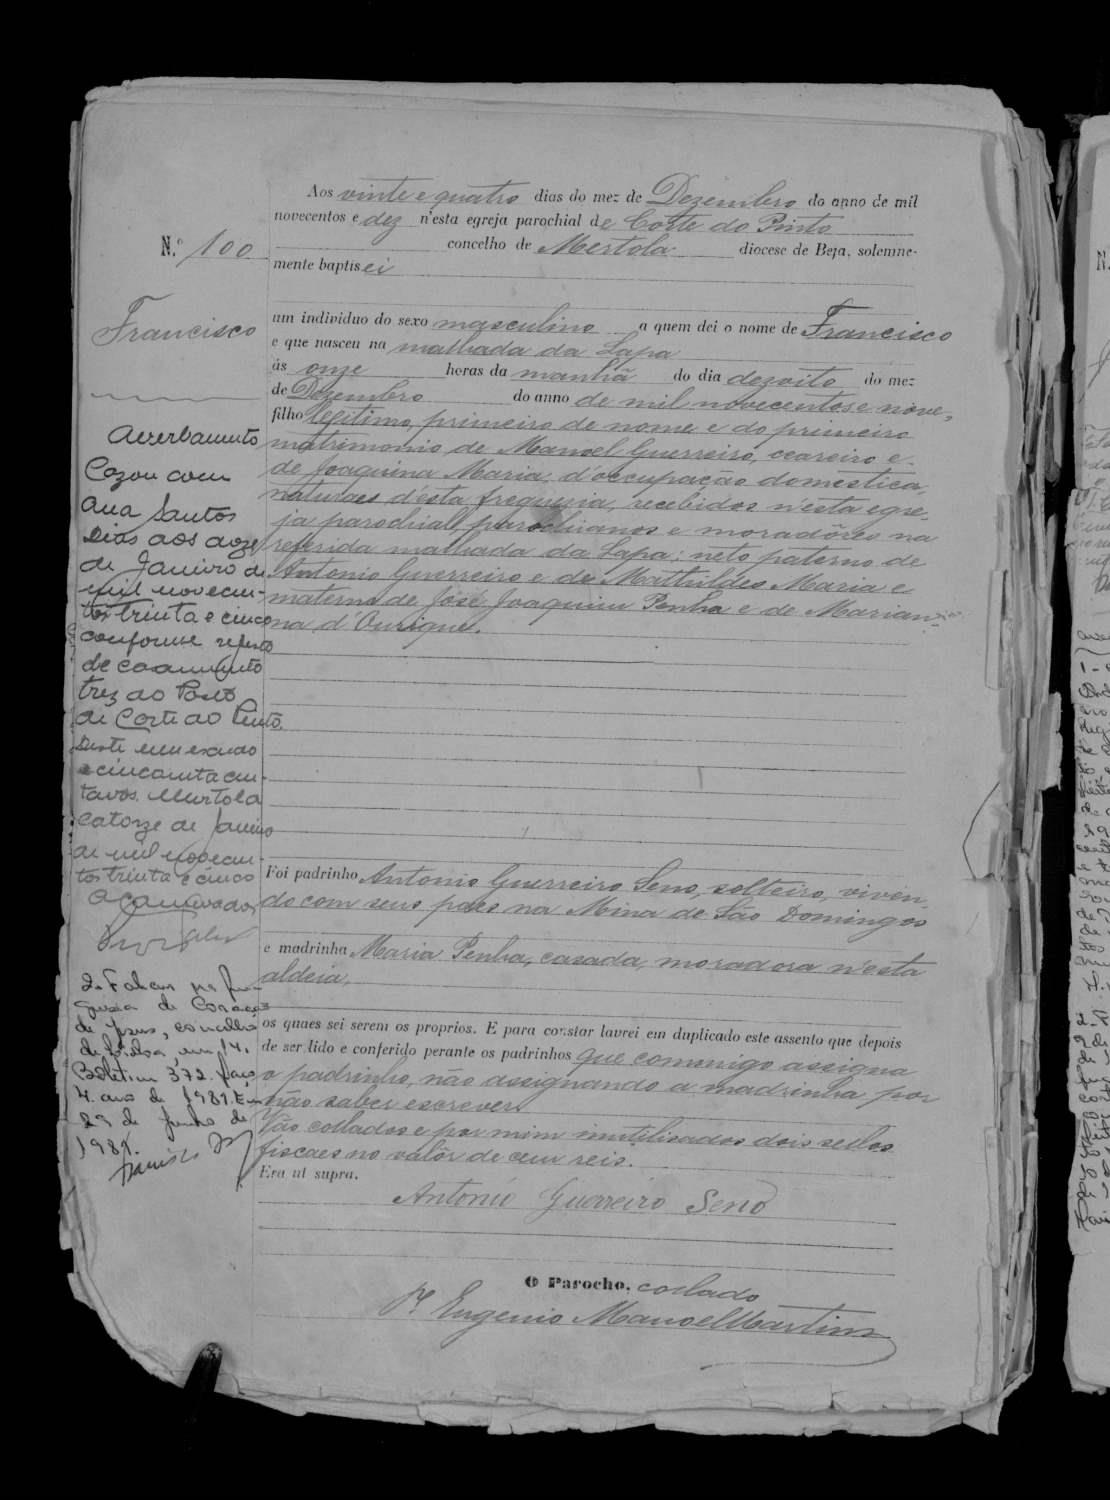 Aos vinte e quatro dias do mez de Dezembro do anno de mil
novecentos e dez n'esta egreja parochial de Corte do Pinto
concelho de Mertola diocese de Beja, solemne-
mente baptisei
N.º 100
Francisco
um individuo do sexo masculino a quem dei o nome de Francisco
e que nasceu na malhada da Lapa
ás onze horas da manhã do dia dezoito do mez
de Dezembro do anno de mil novecentos e nove,
filho legitimo, primeiro de nome e do primeiro
matrimonio, de Manoel Guerreiro, ceareiro e
de Joaquina Maria, d'occupação domestica,
naturaes d'esta freguezia, recebidos n'esta egre-
ja parochial, parochianos e moradôres na
referida malhada da Lapa; neto paterno de
Antonio Guerreiro e de Mathildes Maria e
materno de José Joaquim Penha e de Marian-
na d'Ourique.
Foi padrinho Antonio Guerreiro Seno, solteiro, viven-
do com seus paes na Mina de São Domingos
e madrinha Maria Penha, casada, moradora n'esta
aldeia,
os quaes sei serem os proprios. E para constar lavrei em duplicado este assento que depois
de ser lido e conferido perante os padrinhos que commigo assigna
o padrinho, não assignando a madrinha por
não saber escrever.
Vão collados e por mim inutilisados dois sellos
fiscaes no valôr de cem reis.
Era ut supra.
Antonio Guerreiro Seno
O Parocho, collado
P.e Eugenio Manoel Martins
Averbamento
Cazou com
Ana Santos
Dias aos doze
de Janeiro de
mil novecen-
tos trinta e cinco
conforme registo
de casamento
trez do Posto
de Corte do Pinto.
Deste um escudo
e cincoenta cen-
tavos. Mertola
catorze de Janeiro
de mil novecen-
tos trinta e cinco
2. Faleceu na fre-
guesia de Coração
de Jesus, concelho
de Lisboa, em 14.
Boletim 372. maço
4. ano de 1981. Em
29 de Junho de
1981.